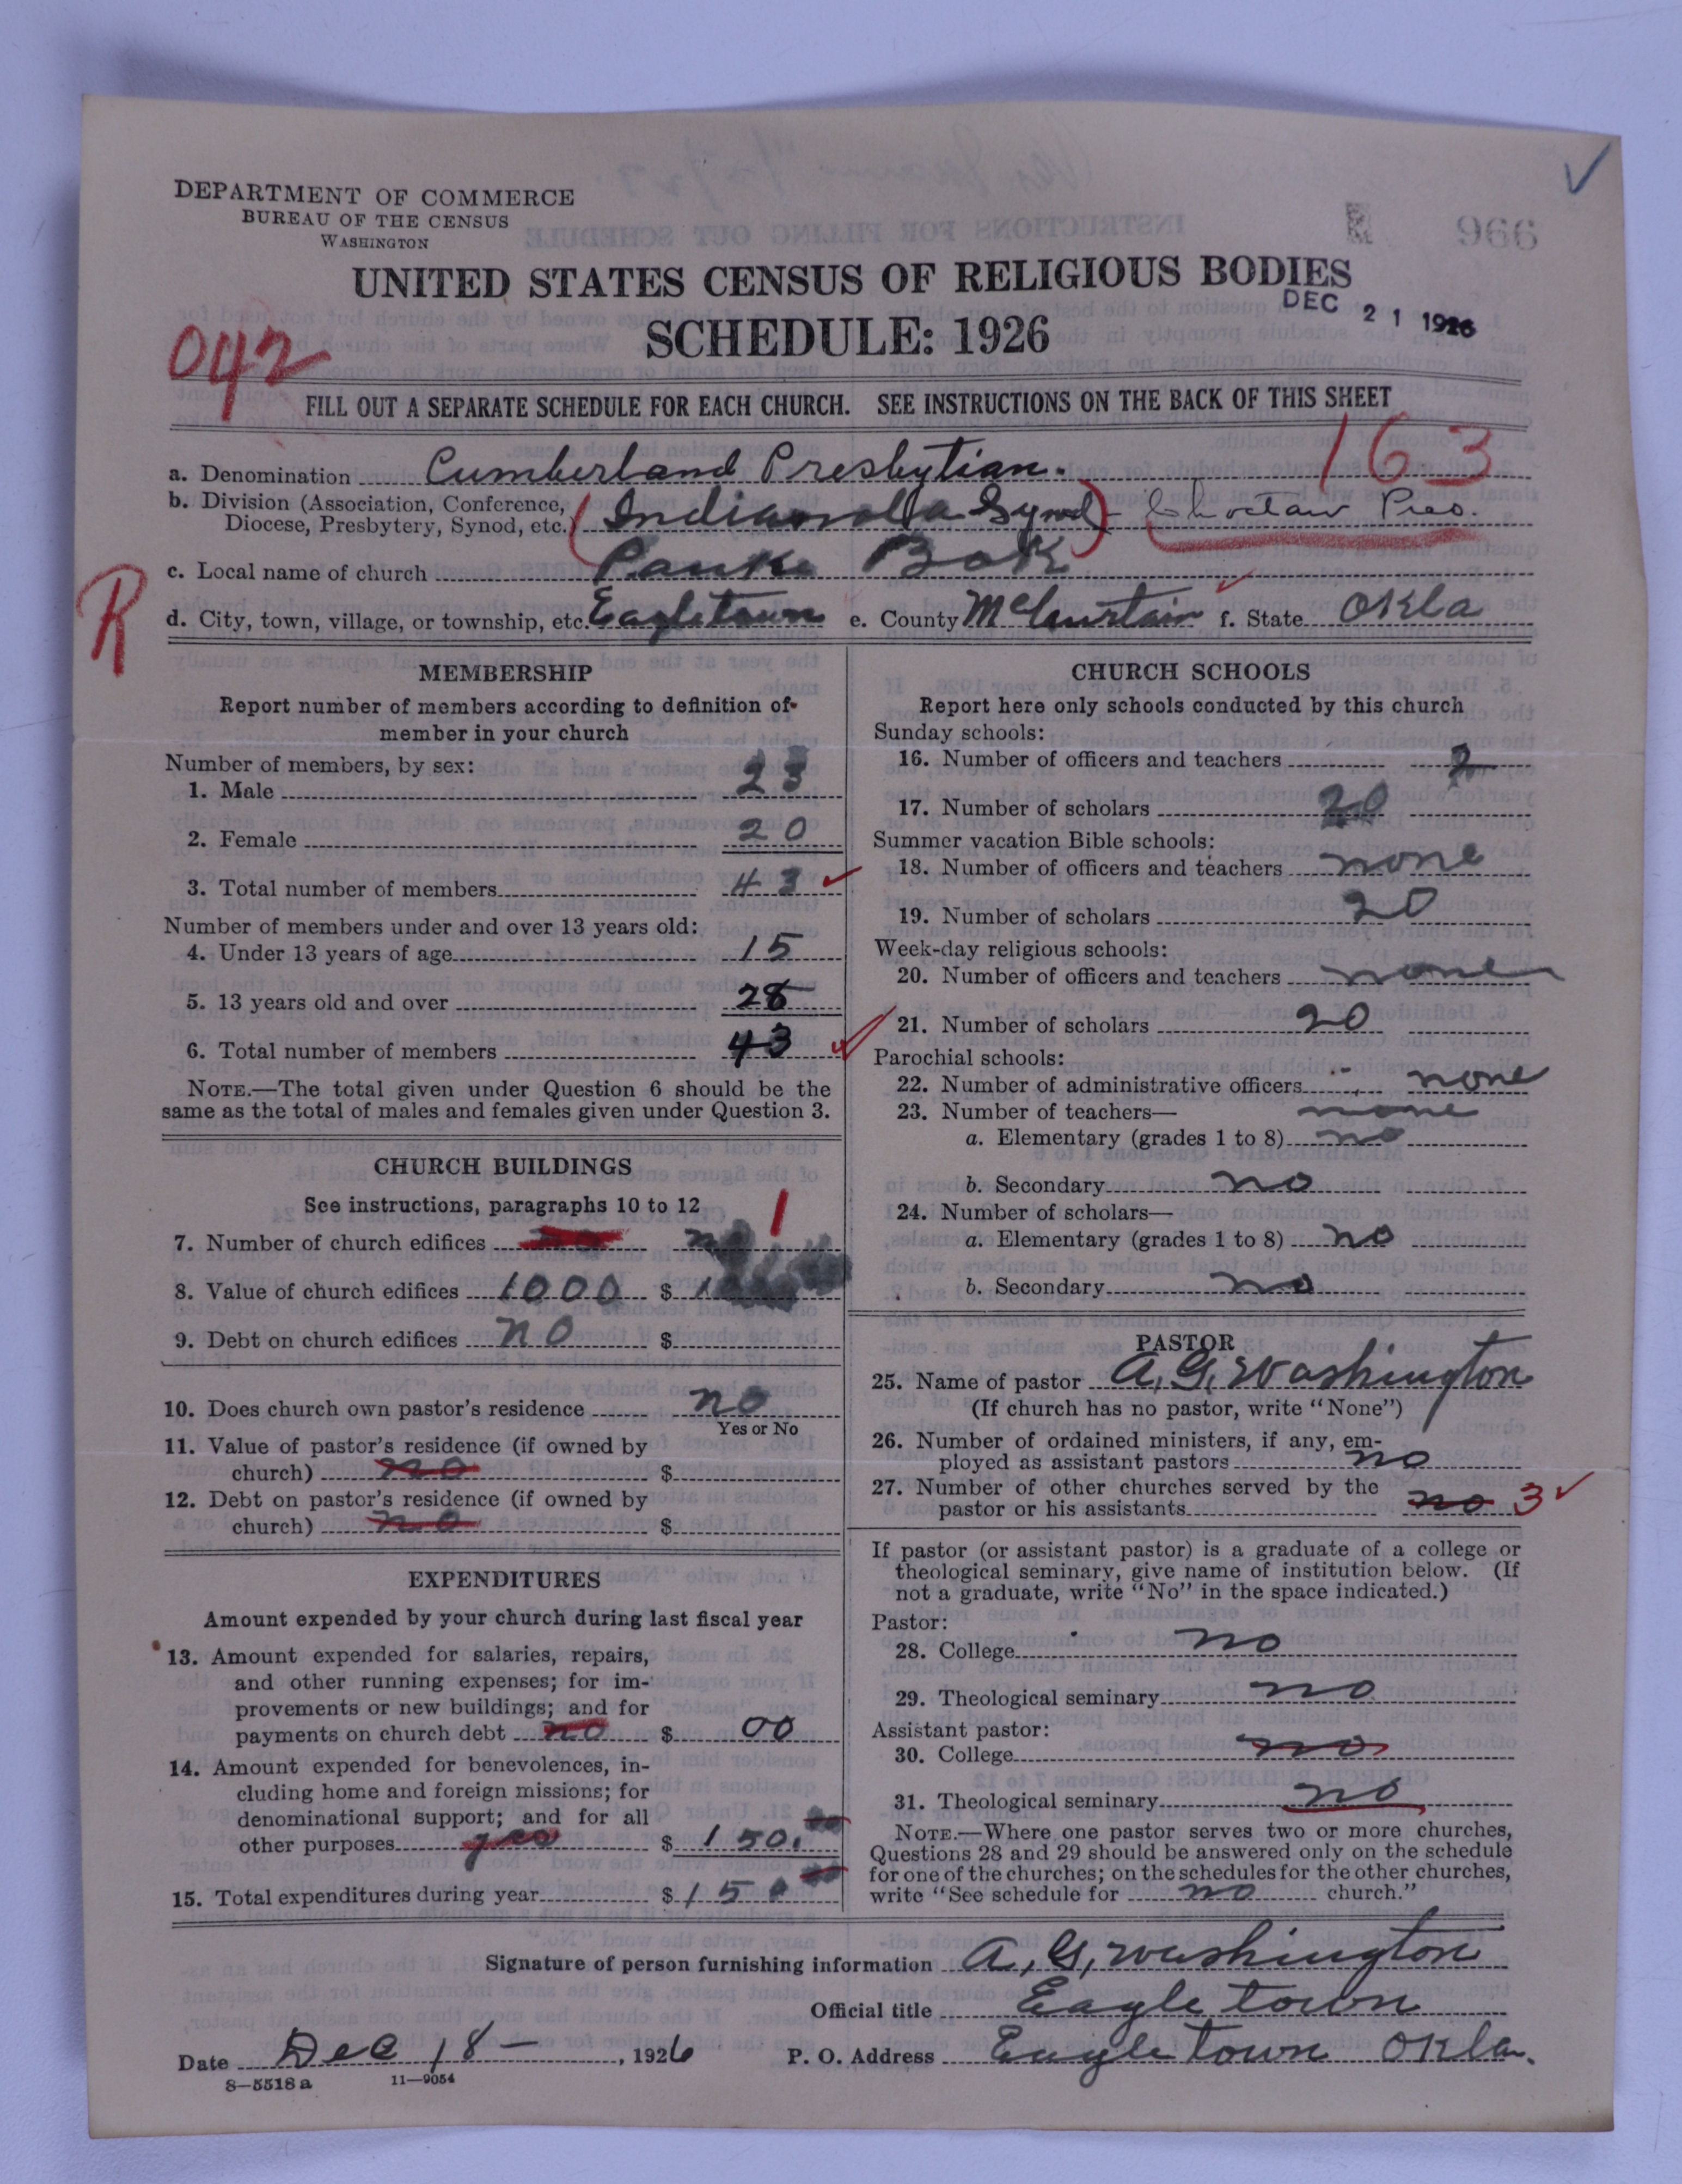 DEPARTMENT OF COMMERCE
BUREAU OF THE CENSUS
WASHINGTON
966
UNITED STATES CENSUS OF RELIGIOUS BODIES
DEC 21 1926
SCHEDULE: 1926
042
FILL OUT A SEPARATE SCHEDULE FOR EACH CHURCH. SEE INSTRUCTIONS ON THE BACK OF THIS SHEET
163
a. Denomination Cumberland Presbytian.
b. Division (Association, Conference,
Diocese, Presbytery, Synod, etc.) (Indianola Synod) Choctaw Pres.
c. Local name of church Panki Bok
R
d. City, town, village, or township, etc. Eagletown e. County McCurtain f. State Okla
MEMBERSHIP
Report number of members according to definition of
member in your church
Number of members, by sex:
1. Male 23
2. Female 20
3. Total number of members 43
Number of members under and over 13 years old:
4. Under 13 years of age 15
5. 13 years old and over 28
6. Total number of members 43
NOTE.—The total given under Question 6 should be the
same as the total of males and females given under Question 3.
CHURCH BUILDINGS
See instructions, paragraphs 10 to 12
7. Number of church edifices 1
8. Value of church edifices 1000 $
9. Debt on church edifices no $
10. Does church own pastor's residence no
Yes or No
11. Value of pastor's residence (if owned by
church) no $
12. Debt on pastor's residence (if owned by
church) no $
EXPENDITURES
Amount expended by your church during last fiscal year
13. Amount expended for salaries, repairs,
and other running expenses; for im-
provements or new buildings; and for
payments on church debt no $ 00
14. Amount expended for benevolences, in-
cluding home and foreign missions; for
denominational support; and for all
other purposes yes $ 150.
15. Total expenditures during year $ 150
CHURCH SCHOOLS
Report here only schools conducted by this church
Sunday schools:
16. Number of officers and teachers 2
17. Number of scholars 20
Summer vacation Bible schools:
18. Number of officers and teachers none
19. Number of scholars 20
Week-day religious schools:
20. Number of officers and teachers none
21. Number of scholars 20
Parochial schools:
22. Number of administrative officers none
23. Number of teachers— none
a. Elementary (grades 1 to 8) no
b. Secondary no
24. Number of scholars—
a. Elementary (grades 1 to 8) no
b. Secondary no
PASTOR
25. Name of pastor A. G. Washington
(If church has no pastor, write "None")
26. Number of ordained ministers, if any, em-
ployed as assistant pastors no
27. Number of other churches served by the
pastor or his assistants no 3
If pastor (or assistant pastor) is a graduate of a college or
theological seminary, give name of institution below. (If
not a graduate, write "No" in the space indicated.)
Pastor:
28. College no
29. Theological seminary no
Assistant pastor:
30. College no
31. Theological seminary no
NOTE.—Where one pastor serves two or more churches,
Questions 28 and 29 should be answered only on the schedule
for one of the churches; on the schedules for the other churches,
write "See schedule for no church."
Signature of person furnishing information A. G. Washington
Official title Eagletown
Date Dec 18 - , 1926 P. O. Address Eagletown Okla.
8—5518 a 11—9054